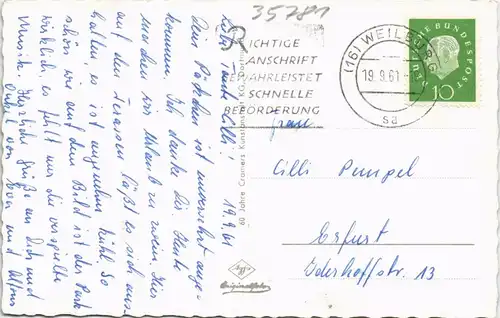 35781
RICHTIGE
ANSCHRIFT
GEWÄHRLEISTET
SCHNELLE
BEFÖRDERUNG
(16) WEILBURG
19.9.61
sa
DEUTSCHE BUNDESPOST
10
19.9.61
Liebe Tante Cilli!
Dein Päckchen ist unversehrt ange-
kommen. Ich danke Dir. Heute
machen wir Urlaub zu zweien. Hier
auf den Terassen läßt es sich aus-
halten, es ist angenehm kühl. So
schön wie auf dem Bild ist der Park
wirklich, es fehlt nur die verspielte
Musik. Herzliche Grüße an Dich und
Onkel von Eva und
60 Jahre Cramers Kunstanstalt KG, Dortmund
Originalfoto
Frau
Cilli Pempel
Erfurt
Iderhoffstr. 13